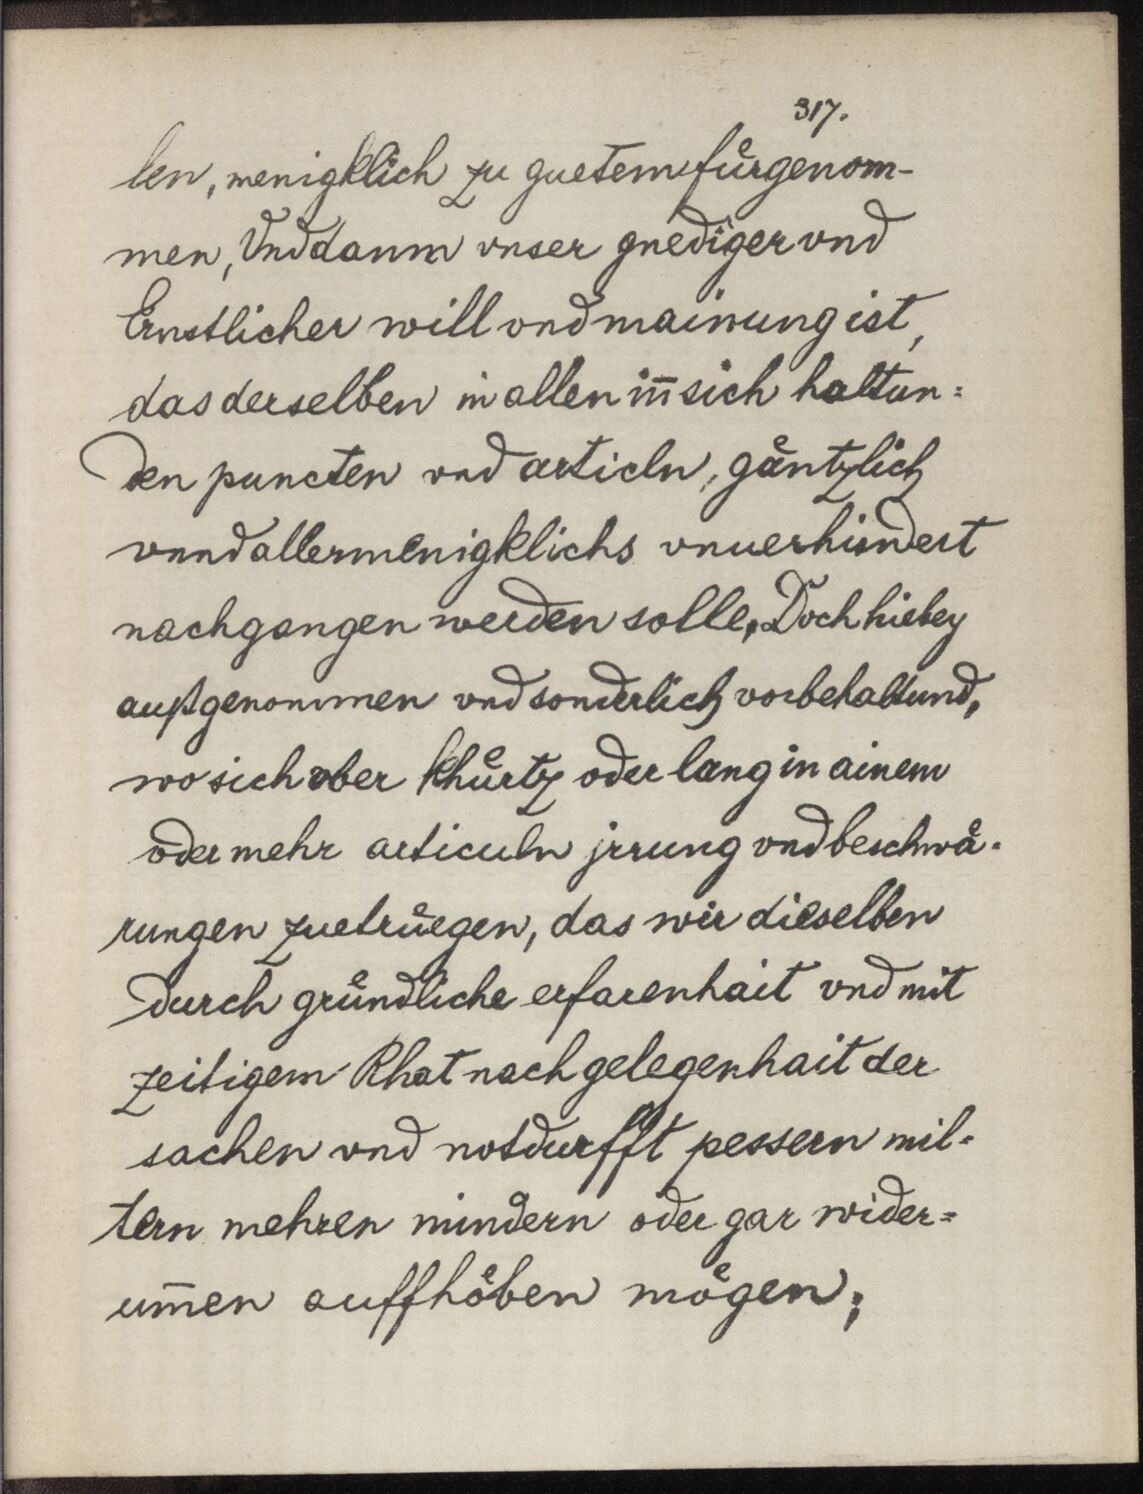 317.
len, menigklich zu guetem fůrgenom-
men, Vnd dann vnser gnediger vnd
Ernstlicher will vnd mainung ist,
das derselben in allen in̄ sich haltun=
den puncten vnd articln, gåntzlich
vnnd allermenigklichs vnuerhindert
nachgangen werden solle, Doch hiebey
außgenommen vnd sonderlich vorbehaltund,
wo sich vber khůrtz oder lang in ainem
oder mehr articuln jrrung vnd beschwå-
rungen zuetrůegen, das wir dieselben
durch grůndliche erfarenhait vnd mit
zeitigem Rhat nach gelegenhait der
sachen vnd notdurfft pessern mil-
tern mehren mindern oder gar wider=
um̄en auffhöben mögen;